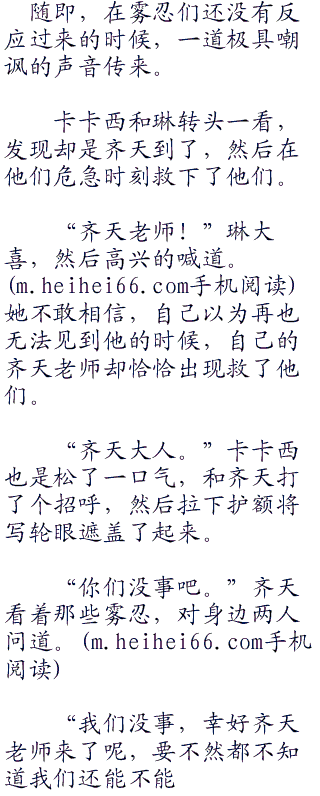 随即，在雾忍们还没有反
应过来的时候，一道极具嘲
讽的声音传来。
卡卡西和琳转头一看，
发现却是齐天到了，然后在
他们危急时刻救下了他们。
“齐天老师！”琳大
喜，然后高兴的喊道。
(m.heihei66.com手机阅读)
她不敢相信，自己以为再也
无法见到他的时候，自己的
齐天老师却恰恰出现救了他
们。
“齐天大人。”卡卡西
也是松了一口气，和齐天打
了个招呼，然后拉下护额将
写轮眼遮盖了起来。
“你们没事吧。”齐天
看着那些雾忍，对身边两人
问道。(m.heihei66.com手机
阅读)
“我们没事，幸好齐天
老师来了呢，要不然都不知
道我们还能不能